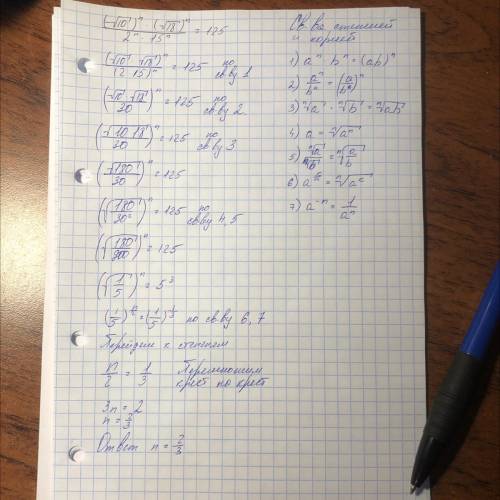 (√10)ⁿ (√18)ⁿ / 2ⁿ · 15ⁿ = 125
(√10 · √18)ⁿ / (2·15)ⁿ = 125 по св-ву 1
(√10 · √18 / 30)ⁿ = 125 по св-ву 2
(√10·18 / 30)ⁿ = 125 по св-ву 3
(√180 / 30)ⁿ = 125
(√(180 / 30²))ⁿ = 125 по св-ву 4,5
(√(180 / 900))ⁿ = 125
(√(1/5))ⁿ = 5³
по св-ву 6, 7
Перейдем к степеням
n/2 = 1/3 Перемножим
крест по крест
3n = 2
n = 2/3
Ответ n = 2/3
Св-ва степеней
и корней
1) aⁿ · bⁿ = (ab)ⁿ
2) aⁿ/bⁿ = (a/b)ⁿ
3) ⁿ√a · ⁿ√b = ⁿ√ab
4) a = ⁿ√aⁿ
5) ⁿ√a / ⁿ√b = ⁿ√(a/b)
7) a⁻ⁿ = 1/aⁿ